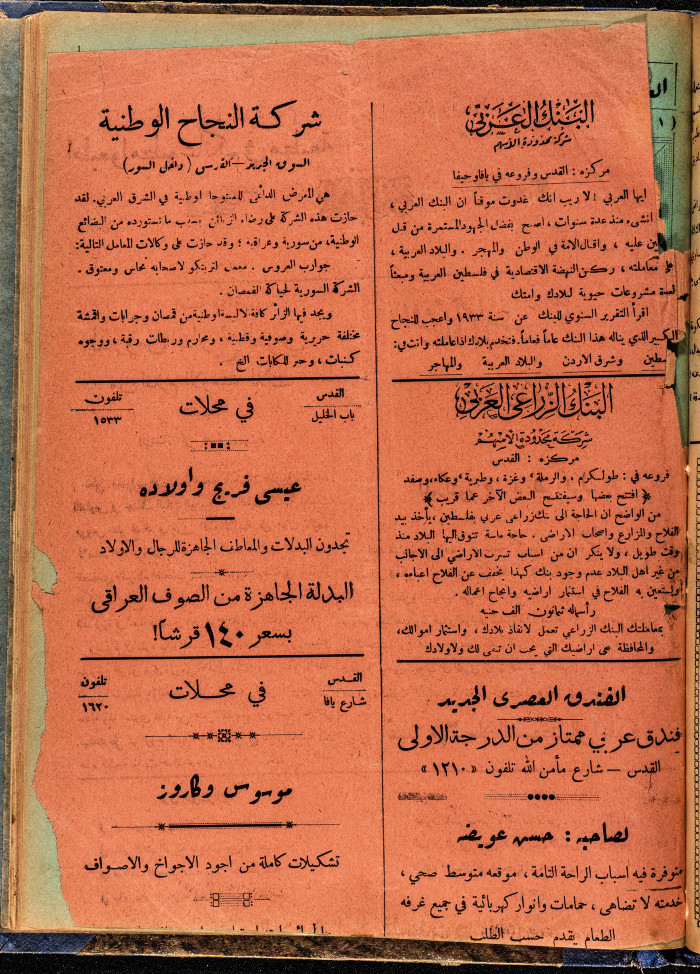 البنك العربي
شركة محدودة الأسهم
مركزه : القدس وفروعه في يافا وحيفا
ايها العربي ! لا ريب انك غدوت موقناً ان البنك العربي ،
انشىء منذ عدة سنوات ، اصبح بفضل الجهود المستمرة من قبل
عليه ، واقبال الامة في الوطن والمهجر . والبلاد العربية ،
على معاملته ، ركن النهضة الاقتصادية في فلسطين العربية ومبعثاً
لعدة مشروعات حيوية لبلادك وامتك
اقرأ التقرير السنوي للبنك عن سنة ١٩٣٣ واعجب للنجاح
الكبير الذي يناله هذا البنك عاماً فعاماً. فتخدم بلادك اذا عاملته وانت في :
وشرق الاردن والبلاد العربية والمهاجر
البنك الزراعي العربي
شركة محدودة الاسهم
مركزه : القدس
فروعه في : طولكرم ، والرملة ، وغزة ، وطبرية ، وعكا ، وصفد
﴿ افتتح بعضها وسيفتتح البعض الآخر عما قريب ﴾
من الواضح ان الحاجة الى بنك زراعي عربي بفلسطين ، يأخذ بيد
الفلاح والمزارع واصحاب الاراضي ، حاجة ماسة تتوق اليها البلاد منذ
وقت طويل ، ولا ينكر ان من اسباب تسرب الاراضي الى الاجانب
من غير اهل البلاد عدم وجود بنك كهذا يخفف عن الفلاح اعباءه ،
ويستعين به الفلاح في استثمار اراضيه وانجاح اعماله .
رأسماله ثمانون الف جنيه
بمعاملتك البنك الزراعي تعمل لانقاذ بلادك ، واستثمار اموالك ،
والمحافظة على اراضيك التي يجب ان تبقى لك ولاولادك
الفندق العصري الجديد
فندق عربي ممتاز من الدرجة الاولى
القدس — شارع مأمن الله تلفون «١٢١٠»
لصاحبه : حسن عويضه
متوفرة فيه اسباب الراحة التامة ، موقعه متوسط صحي ،
خدمته لا تضاهى ، حمامات وانوار كهربائية في جميع غرفه
الطعام يقدم حسب الطلب
شركة النجاح الوطنية
السوق الجديد — القدس ( داخل السور )
هي المعرض الدائمي للمنتوجات الوطنية في الشرق العربي. لقد
حازت هذه الشركة على رضاء الزبائن بسبب ما تستورده من البضائع
الوطنية، من سورية وعراقية ؛ وقد حازت على وكالات المعامل التالية :
جوارب العروس . معمل التريكو لاصحابه نحاس ومعتوق .
الشركة السورية لحياكة القمصان .
ويجد فيها الزائر كافة الالبسة الوطنية من قمصان وجرابات واقمشة
مختلفة حريرية وصوفية وقطنية ، ومحارم وربطات رقبة ، ووجوه
كنبات ، وحبر للكتابات الخ .
القدس
باب الخليل
في محلات
تلفون
١٥٣٣
عيسى فريج واولاده
تجدون البدلات والمعاطف الجاهزة للرجال والاولاد
البدلة الجاهزة من الصوف العراقي
بسعر ١٤٠ قرشاً !
القدس
شارع يافا
في محلات
تلفون
١٦٢٠
موسوس وكاروز
تشكيلات كاملة من اجود الاجواخ والاصواف